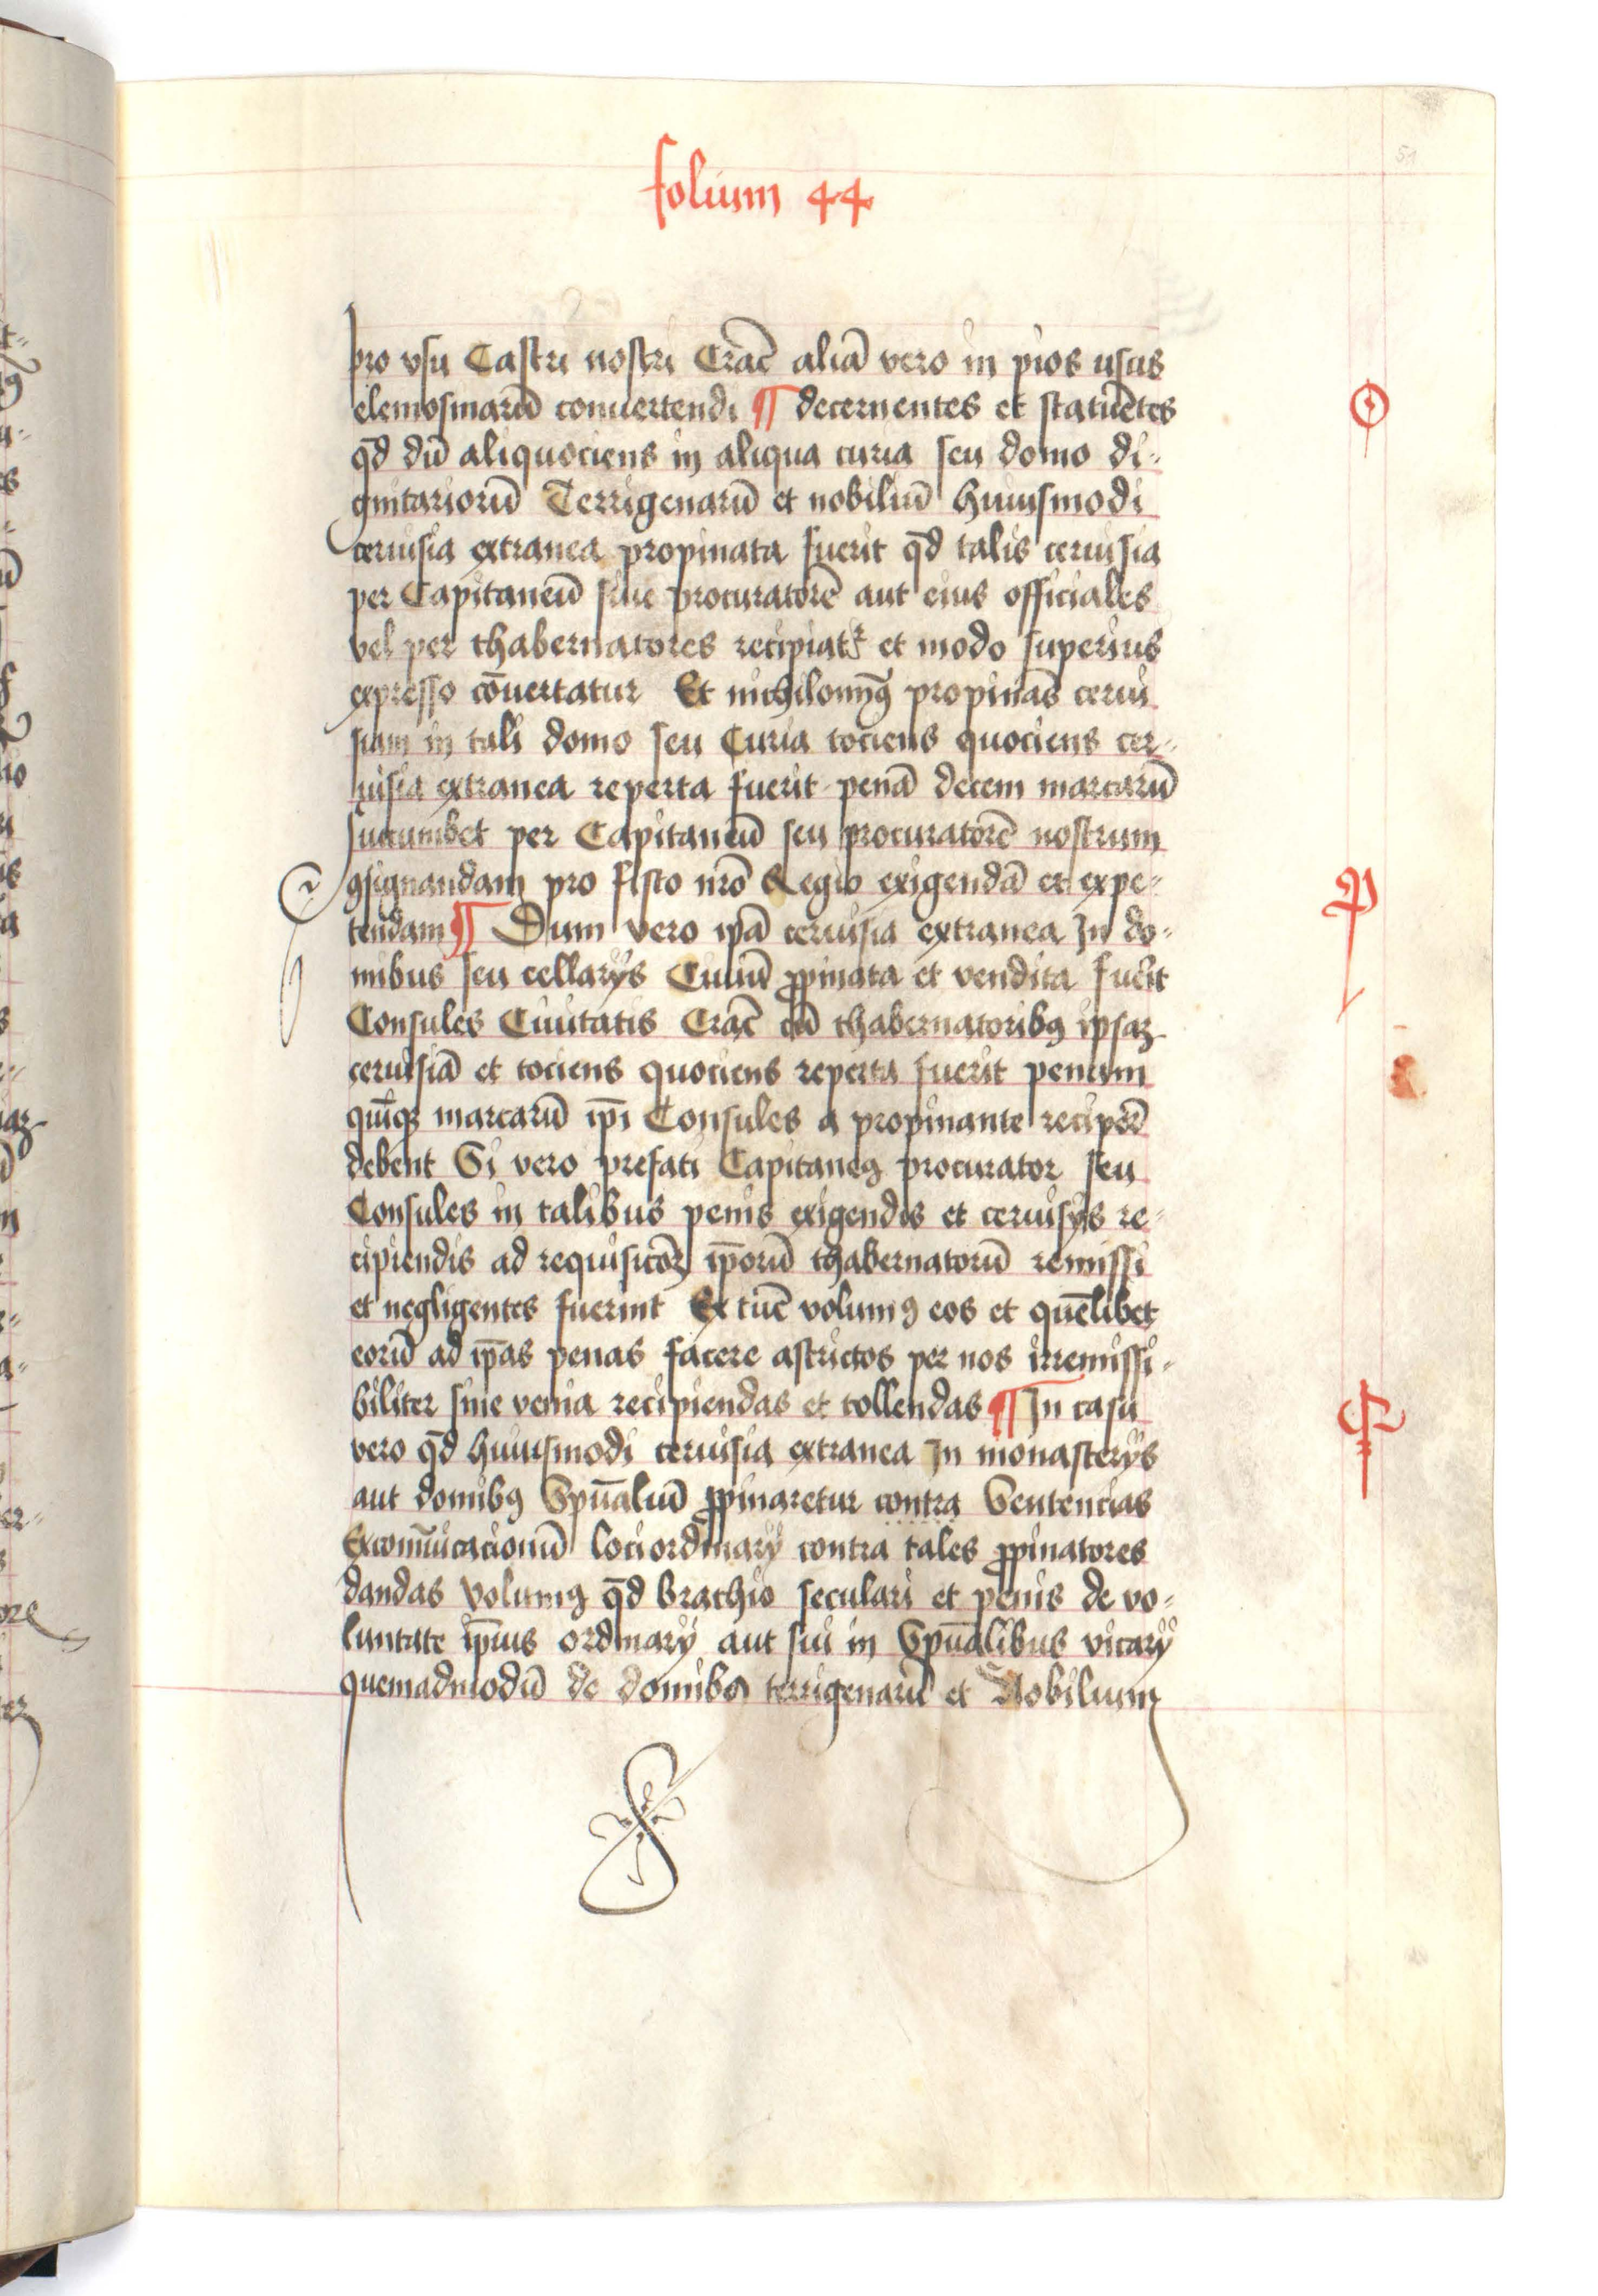 51
folium 44
pro vsu Castri nostri Crac̄ aliā vero in pios usus
elemosinarū conuertendi ¶ decernentes et statuētes
qd̄ dū aliquociens in aliqua curia seu domo di-
gnitariorū Terrigenarū et nobiliū huiusmodi
ceruisia extranea propinata fuerit qd̄ talis ceruisia
per Capitaneū siue procuratorē aut eius officiales
vel per thabernatores recipiatr et modo superius
expresso cōuertatur Et nichilomingꝰ propinās cerui
siam in tali domo seu Curia tociens quociens cer-
uisia extranea reperta fuerit penā decem marcarū
sucumbet per Capitaneū seu procuratorē nostrum
ꝯsignandam pro fisco nrō Regio exigendā et expe-
tendam ¶ Dum vero ipā ceruisia extranea In do-
mibus seu cellarijs Ciuiū ꝓpinata et vendita fuerit
Consules Ciuitatis Crac̄ cū thabernatoribꝰ ipsaꝫ
ceruisiā et tociens quociens reperta fuerit penam
quīqꝫ marcarū ip̄i Consules a propinante reciperē
debent Si vero prefati Capitaneꝰ procurator seu
Consules in talibus penis exigendis et ceruisijs re-
cipiendis ad requisicōꝫ ip̄orū thabernatorū remissi
et negligentes fuerint Ex tūc volumꝰ eos et quēlibet
eorū ad ip̄as penas facere astrictos per nos irremissi-
biliter sine venia recipiendas et tollendas ¶ In casu
vero qd̄ huiusmodi ceruisia extranea In monasterijs
aut domibꝰ Spūaliū ꝓpinaretur contra Sentencias
Excomūicacionū loci ordinarij contra tales ꝓpinatores
dandas volumꝰ qd̄ brachio seculari et penis de vo-
luntate ip̄ius ordinarij aut sui in Spūalibus vicarij
quemadmodū de domibꝰ terrigenarū et Nobilium